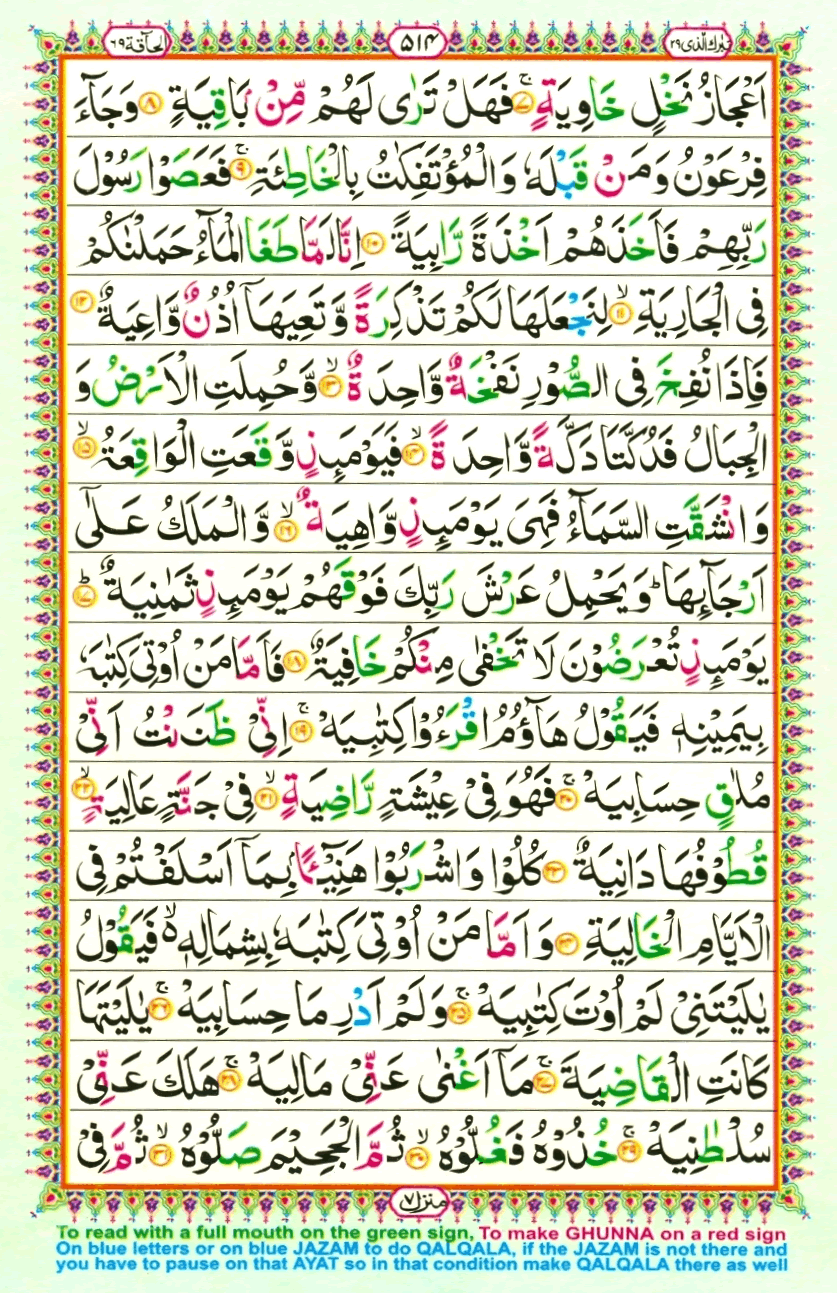 تبٰرك الّذی ۲۹
۵۱۴
الحآقة ۶۹
اَعْجَازُ نَخْلٍ خَاوِیَةٍ ۚ۝۷ فَهَلْ تَرٰی لَهُمْ مِّنْۢ بَاقِیَةٍ ۝۸ وَجَآءَ
فِرْعَوْنُ وَمَنْ قَبْلَهٗ وَالْمُؤْتَفِكٰتُ بِالْخَاطِئَةِ ۚ۝۹ فَعَصَوْا رَسُوْلَ
رَبِّهِمْ فَاَخَذَهُمْ اَخْذَةً رَّابِیَةً ۝۱۰ اِنَّا لَمَّا طَغَا الْمَآءُ حَمَلْنٰكُمْ
فِی الْجَارِیَةِ ۙ۝۱۱ لِنَجْعَلَهَا لَكُمْ تَذْكِرَةً وَّتَعِیَهَاۤ اُذُنٌ وَّاعِیَةٌ ۝۱۲
فَاِذَا نُفِخَ فِی الصُّوْرِ نَفْخَةٌ وَّاحِدَةٌ ۙ۝۱۳ وَّحُمِلَتِ الْاَرْضُ وَ
الْجِبَالُ فَدُكَّتَا دَكَّةً وَّاحِدَةً ۙ۝۱۴ فَیَوْمَىِٕذٍ وَّقَعَتِ الْوَاقِعَةُ ۙ۝۱۵
وَانْشَقَّتِ السَّمَآءُ فَهِیَ یَوْمَىِٕذٍ وَّاهِیَةٌ ۙ۝۱۶ وَّالْمَلَكُ عَلٰۤی
اَرْجَآىِٕهَا ؕ وَیَحْمِلُ عَرْشَ رَبِّكَ فَوْقَهُمْ یَوْمَىِٕذٍ ثَمٰنِیَةٌ ؕ۝۱۷
یَوْمَىِٕذٍ تُعْرَضُوْنَ لَا تَخْفٰی مِنْكُمْ خَافِیَةٌ ۝۱۸ فَاَمَّا مَنْ اُوْتِیَ كِتٰبَهٗ
بِیَمِیْنِهٖ فَیَقُوْلُ هَآؤُمُ اقْرَءُوْا كِتٰبِیَهْ ۚ۝۱۹ اِنِّیْ ظَنَنْتُ اَنِّیْ
مُلٰقٍ حِسَابِیَهْ ۚ۝۲۰ فَهُوَ فِیْ عِیْشَةٍ رَّاضِیَةٍ ۙ۝۲۱ فِیْ جَنَّةٍ عَالِیَةٍ ۙ۝۲۲
قُطُوْفُهَا دَانِیَةٌ ۝۲۳ كُلُوْا وَاشْرَبُوْا هَنِیْٓـًٔۢا بِمَاۤ اَسْلَفْتُمْ فِی
الْاَیَّامِ الْخَالِیَةِ ۝۲۴ وَاَمَّا مَنْ اُوْتِیَ كِتٰبَهٗ بِشِمَالِهٖ ۙ۬ فَیَقُوْلُ
یٰلَیْتَنِیْ لَمْ اُوْتَ كِتٰبِیَهْ ۚ۝۲۵ وَلَمْ اَدْرِ مَا حِسَابِیَهْ ۚ۝۲۶ یٰلَیْتَهَا
كَانَتِ الْقَاضِیَةَ ۚ۝۲۷ مَاۤ اَغْنٰی عَنِّیْ مَالِیَهْ ۚ۝۲۸ هَلَكَ عَنِّیْ
سُلْطٰنِیَهْ ۚ۝۲۹ خُذُوْهُ فَغُلُّوْهُ ۙ۝۳۰ ثُمَّ الْجَحِیْمَ صَلُّوْهُ ۙ۝۳۱ ثُمَّ فِیْ
منزل ۷
To read with a full mouth on the green sign, To make GHUNNA on a red sign
On blue letters or on blue JAZAM to do QALQALA, if the JAZAM is not there and
you have to pause on that AYAT so in that condition make QALQALA there as well